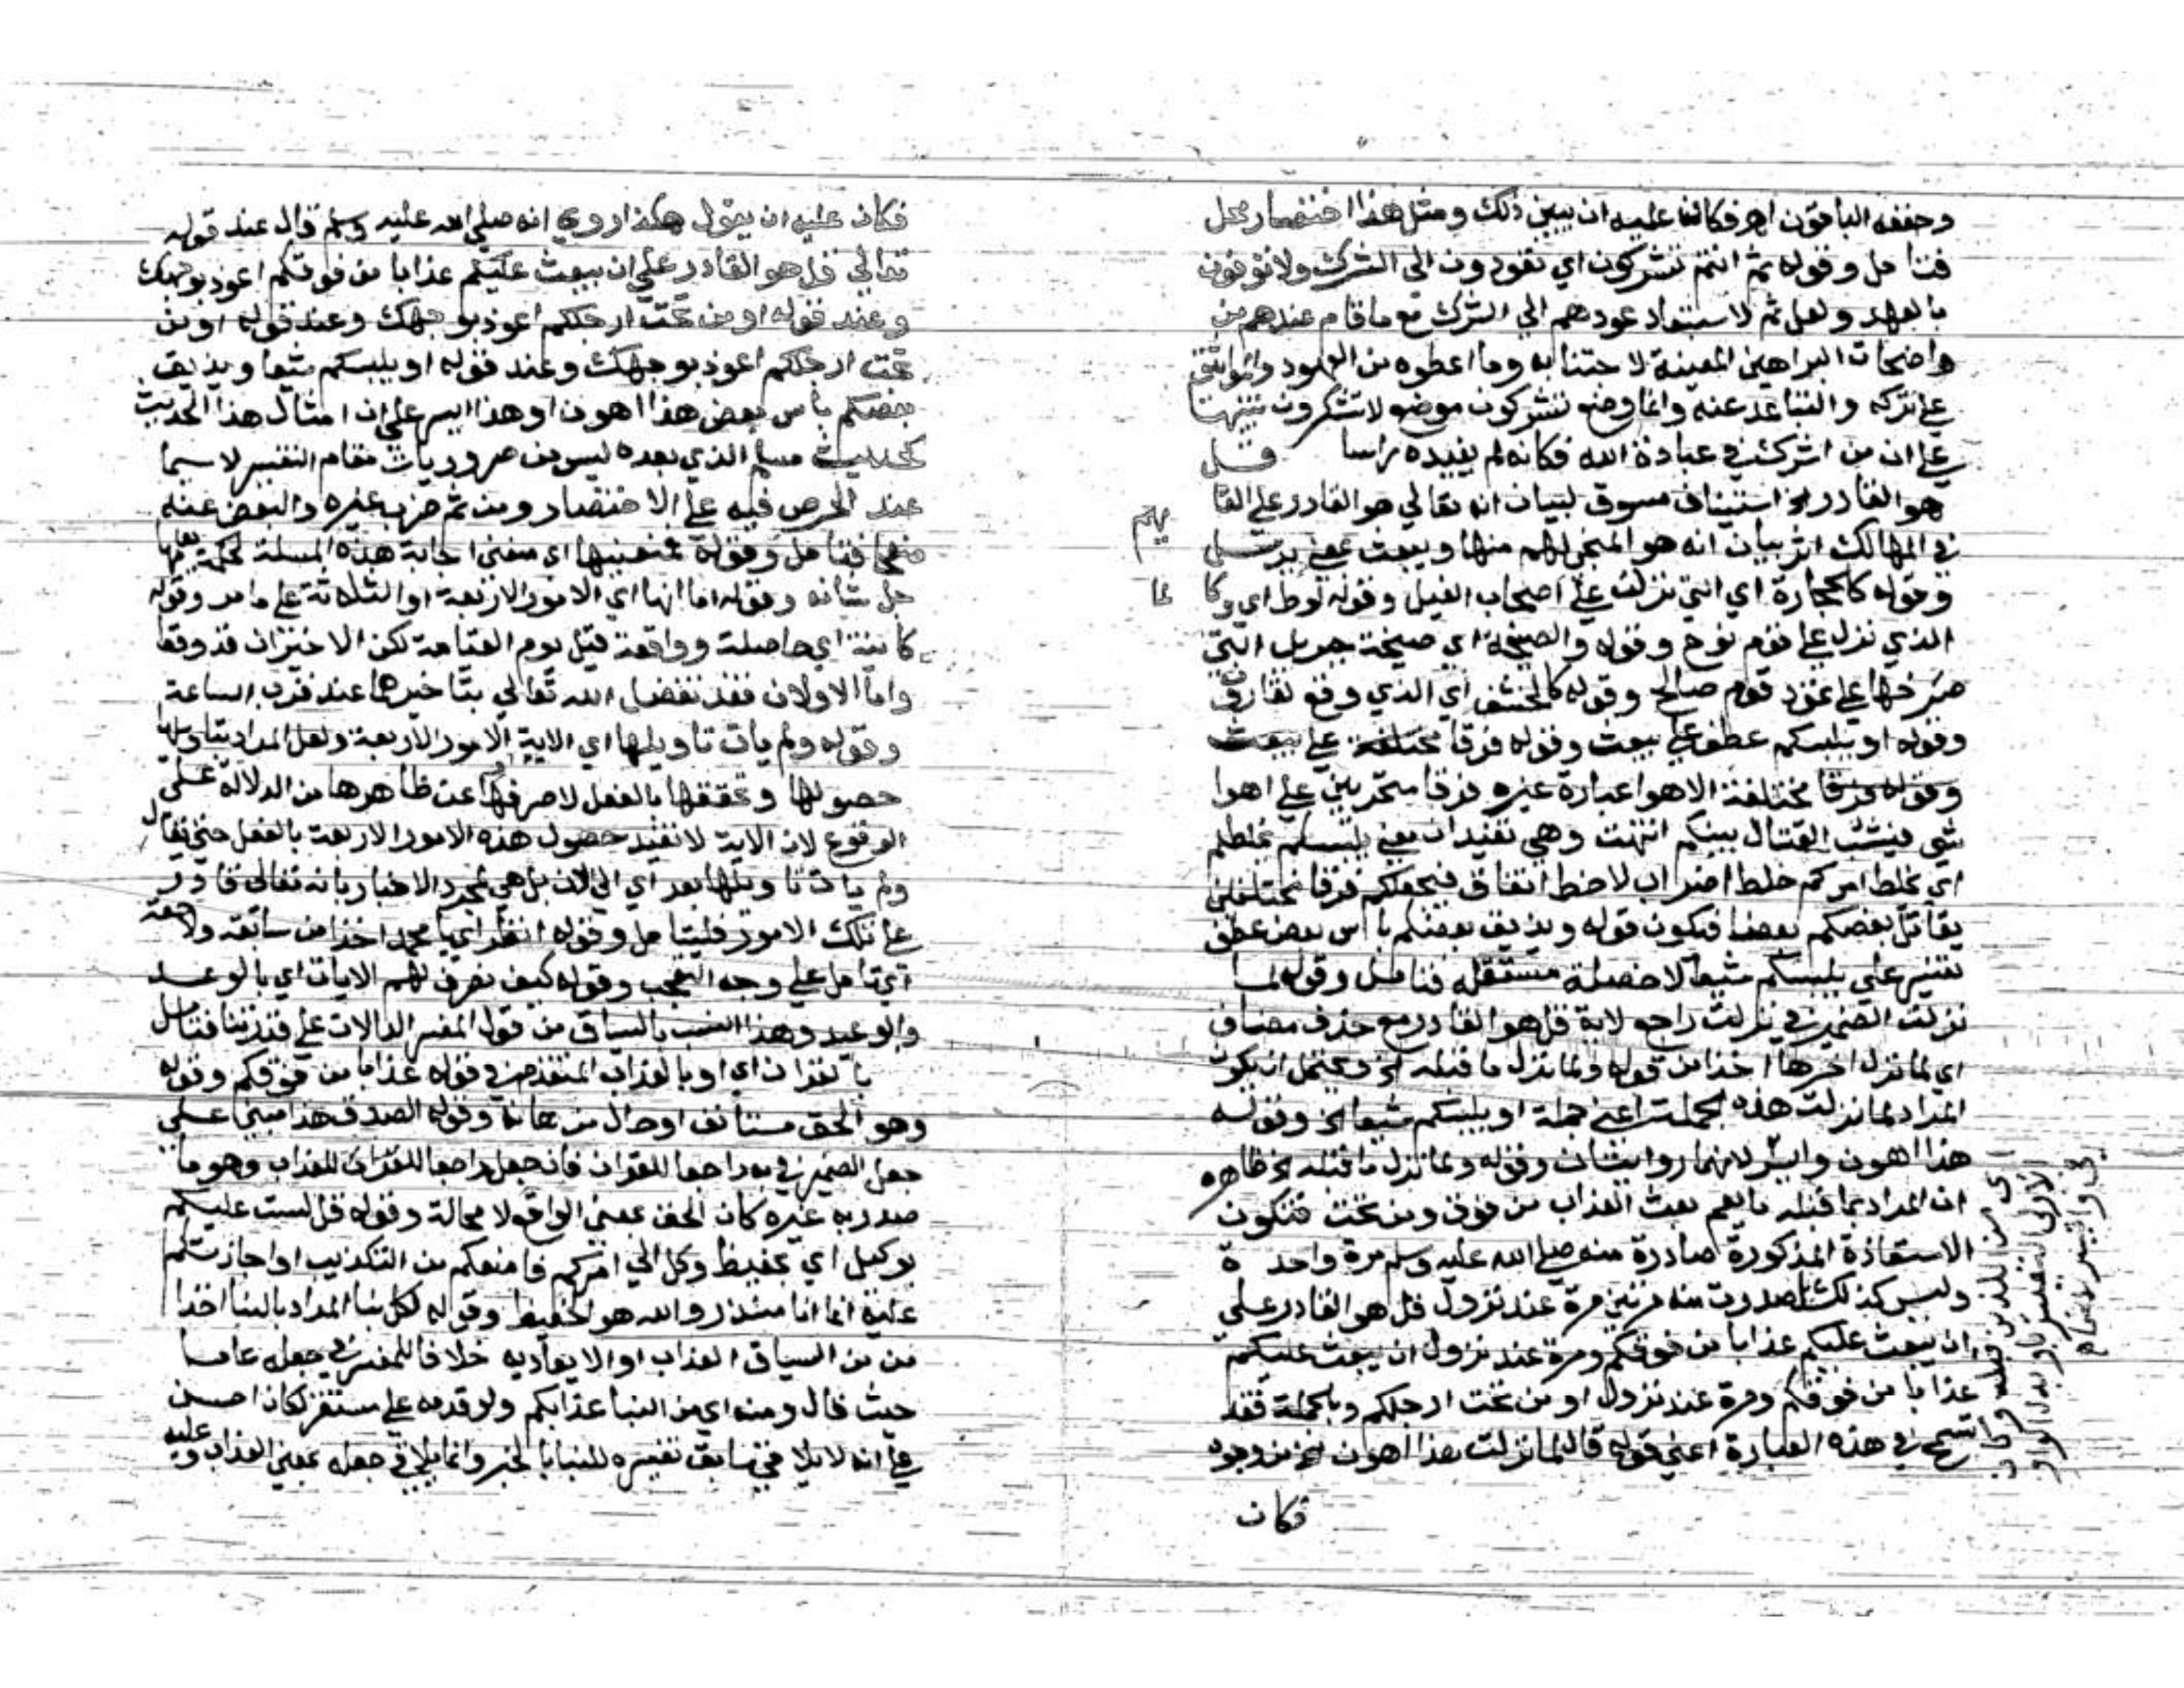 وخففه الباقون اهـ فكان عليه ان يبين ذلك ومثل هذا اختصار مخل
فتامل وقوله ثم انتم تشركون اي تعودون الى الشرك ولا توفون
بالعهد ولعل ثم لاستبعاد عودهم الي الشرك مع ما قام عندهم من
واضحات البراهين المعينة لاجتنابه وما اعطوه من العهود والمواثيق
على تركه والتباعد عنه وانما وضع تشركون موضع لا تشكرون تنبيها
على ان من اشرك في عبادة الله فكانه لم يعبده راسا قل
هو القادر الخ استيناف مسوق لبيان انه تعالي هو القادر على القا
يهم
في المهالك اثر بيان انه هو المنجي لهم منها ويبعث بمعني يرسل
وقوله كالحجارة اي التي نزلت على اصحاب الفيل وقوله لوط اي وكا لما
الذي نزل على قوم نوح وقوله والصيحة اي صيحة جبريل التي
صرخها على ثمود قوم صالح وقوله كالخسف اي الذي وقع لقارون
وقوله او يلبسكم عطف على يبعث وقوله فرقا مختلفة على يبعث
وقوله فرقا مختلفة الاهوا عبارة غيره فرقا متحزبين على اهوا
شتى فينشب القتال بينكم انتهت وهي تفيد ان معني يلبسكم يخلطكم
اي يخلط امركم خلط اضطراب لا خلط اتفاق فيجعلكم فرقا مختلفين
يقاتل بعضكم بعضا فيكون قوله ويذيق بعضكم باس بعض عطف
تفسير على يلبسكم شيعا لا خصلة مستقلة فتامل وقوله لما
نزلت الضمير في نزلت راجع لاية قل هو القادر مع حذف مضاف
اي لما نزل اخرها اخذا من قوله ولما نزل ما قبله الخ ويحتمل ان يكون
المراد لما نزلت هذه الجملة اعني جملة او يلبسكم شيعا الخ وقوله
هذا اهون وايسر لانهما روايتان وقوله ولما نزل ما قبله الخ ظاهره
ان المراد بما قبله ما يعم بعث العذاب من فوق ومن تحت فتكون
الاستعاذة المذكورة صادرة منه صلى الله عليه وسلم مرة واحدة
وليس كذلك بل صدرت منه مرتين مرة عند نزول قل هو القادر على
ان يبعث عليكم عذابا من فوقكم ومرة عند نزول ان يبعث عليكم
عذابا من فوقكم ومرة عند نزول او من تحت ارجلكم وبالجملة فقد
تسمح في هذه العبارة اعني قوله قال لما نزلت هذا اهون الخ من وجوه
فكان
فكان عليه ان يقول هكذا روي انه صلى الله عليه وسلم قال عند قوله
تعالي قل هو القادر على ان يبعث عليكم عذابا من فوقكم اعوذ بوجهك
وعند قوله او من تحت ارجلكم اعوذ بوجهك وعند قوله او من
تحت ارجلكم اعوذ بوجهك وعند قوله او يلبسكم شيعا ويذيق
بعضكم باس بعض هذا اهون او هذا ايسر على ان امثال هذا الحديث
كحديث مسلم الذي بعده ليس من ضروريات مقام التفسير لا سيما
عند الحرص فيه على الاختصار ومن ثم ضرب غيره والبعض عنه
صفحا فتامل وقوله فمنعنيها اي منعني اجابة هذه المسلة لحكمة يعلمها
جل شانه وقوله اما انها اي الامور الاربعة او الثلاثة على ما مر وقوله
كاينة اي حاصلة وواقعة قبل يوم القيامة لكن الاخيران قد وقعا
واما الاولان فقد تفضل الله تعالي بتاخيرهما عند قرب الساعة
وقوله ولم يات تاويلها اي الاية الامور الاربعة ولعل المراد بتاويلها
حصولها وتحققها بالفعل لا صرفها عن ظاهرها من الدلالة على
الوقوع لان الاية لا تفيد حصول هذه الامور الاربعة بالفعل حتى يقال
ولم يات تاويلها بعد اي الي الان بل هي لمجرد الاخبار بانه تعالى قادر
على تلك الامور فليتامل وقوله انظر اي يا محمد اخذا من سابقه ولاحقه
اي تامل على وجه التعجب وقوله كيف نصرف لهم الايات اي بالوعد
والوعيد وهذا انسب بالسياق من قول المفسر الدالات على قدرتنا فتامل
بالقران اي او بالعذاب المتقدم في قوله عذابا من فوقكم وقوله
وهو الحق مستانف او حال من هائه وقوله الصدق هذا مبني على
جعل الضمير في به راجعا للقران فان جعل راجعا للعذاب وهو ما
صدر به غيره كان الحق بمعني الواقع لا محالة وقوله قل لست عليكم
بوكيل اي بحفيظ وكل الي امركم فامنعكم من التكذيب او اجازيكم
عليه انما انا منذر والله هو الحفيظ وقوله لكل نبا المراد بالنبا اخذا
من السياق العذاب او الايعاد به خلافا للمفسر في جعله عاما
حيث قال ومنه اي من النبا عذابكم ولو قدمه على مستقر لكان احسن
على انه لا يلايم سابق تفسيره للنبا بالخبر وانما يلايم جعله بمعني العذاب وعليه